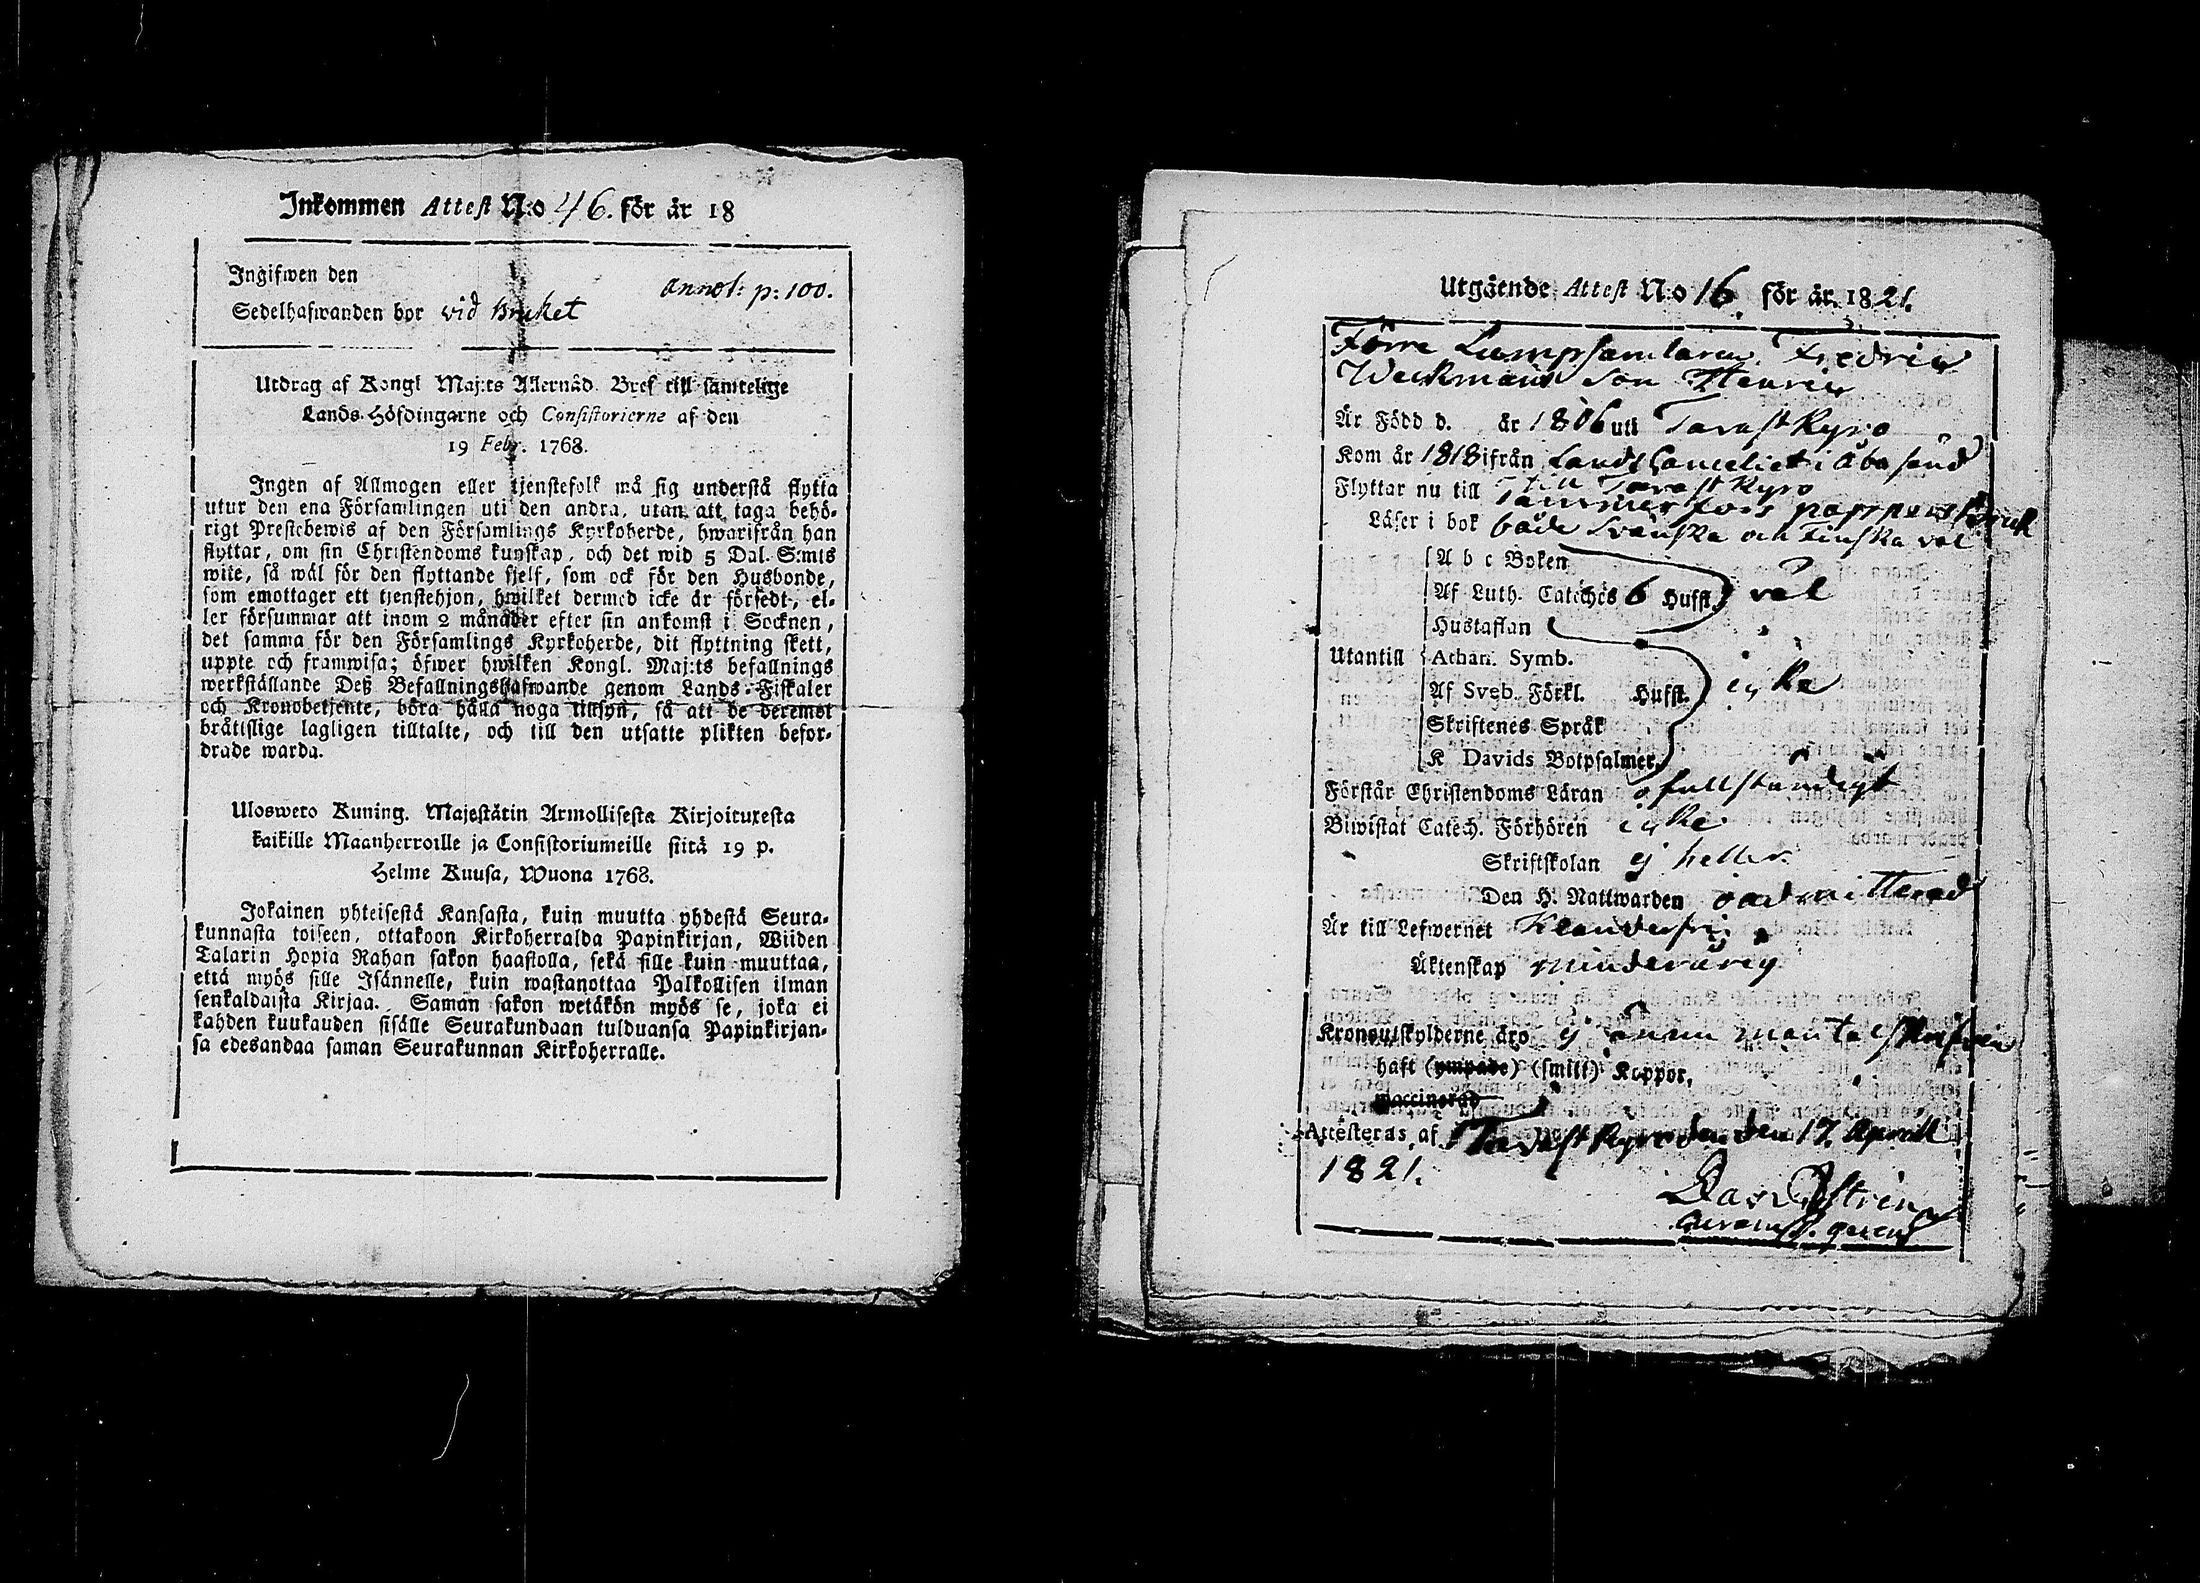 Inkommen Attest N:o 46. för år 18
Ingifwen den
annot: p: 100.
Sedelhafwanden bor vid Bruket
Utdrag af Kongl Maj:ts Allernåd. Bref till samtelige
Lands-Höfdingarne och Consistorierne af den
19 Febr. 1768.
Ingen af Allmogen eller tjenstefolk må sig understå flytta
utur den ena Församlingen uti den andra, utan att taga behö-
rigt Prestebewis af den Församlings Kyrkoherde, hwarifrån han
flyttar, om sin Christendoms kunskap, och det wid 5 Dal. S:mts
wite, så wäl för den flyttande sjelf, som ock för den Husbonde,
som emottager ett tjenstehjon, hwilket dermed icke är försedt, el-
ler försummar att inom 2 månader efter sin ankomst i Socknen,
det samma för den Församlings Kyrkoherde, dit flyttning skett,
uppte och framwisa; öfwer hwilken Kongl. Maj:ts befallnings
werkställande Deß Befallningshafwande genom Lands-Fiskaler
och Kronobetjente, böra hålla noga tillsyn, få att de deremot
bråtislige lagligen tilltalte, och till den utsatte plikten befor-
drade warda.
Uloswero Kuning. Majestätin Armollisesta Kirjoituxesta
kaikille Maanherroille ja Consistoriumeille siitä 19 p.
Helme Kuusa, Wuona 1768.
Jokainen yhteisestä Kansasta, kuin muutta yhdestä Seura-
kunnasta toiseen, ottakoon Kirkoherralda Papinkirjan, Wiiden
Talarin Hopia Rahan sakon haastolla, sekä sille kuin muuttaa,
että myös sille Isännelle, kuin wastanottaa Palkollisen ilman
senkaldaista Kirjaa. Saman sakon wetäkön myös se, joka ei
kahden kuukauden sisälle Seurakundaan tulduansa Papinkirjan-
sa edesandaa saman Seurakunnan Kirkoherralle.
Utgående Attest N:o 16. för år 1821.
Förre Lumpsamlaren Fredric
Weckmans son Henric
Är Född d. år 1806 uti Tavastkyro
Kom år 1818 ifrån Lands Cancelliet i Åbo sänd
till Tavastkyro
Flyttar nu till Tammerfors pappersbruk
Läser i bok både Svänska och Finska väl
A b c Boken
Af Luth. Catechés 6 Hufst. väl
Hustaflan
Utantill Athan. Symb.
Af Sveb. Förkl. Hufst. icke
Skriftenes Språk
K Davids Botpsalmer
Förstår Christendoms Läran ofullständigt
Biwistat Catech. Förhören icke
Skriftskolan ej heller.
Den H. Nattwarden oadmitterad
Är till Lefwernet Klanderfri
Äktenskap minderårig
Kronoutskylderne äro ej ännu mantalskrifven
haft (ympade) (smitt) Koppor,
waccinerad
Attesteras af Tavastkyro den 17 April
1821.